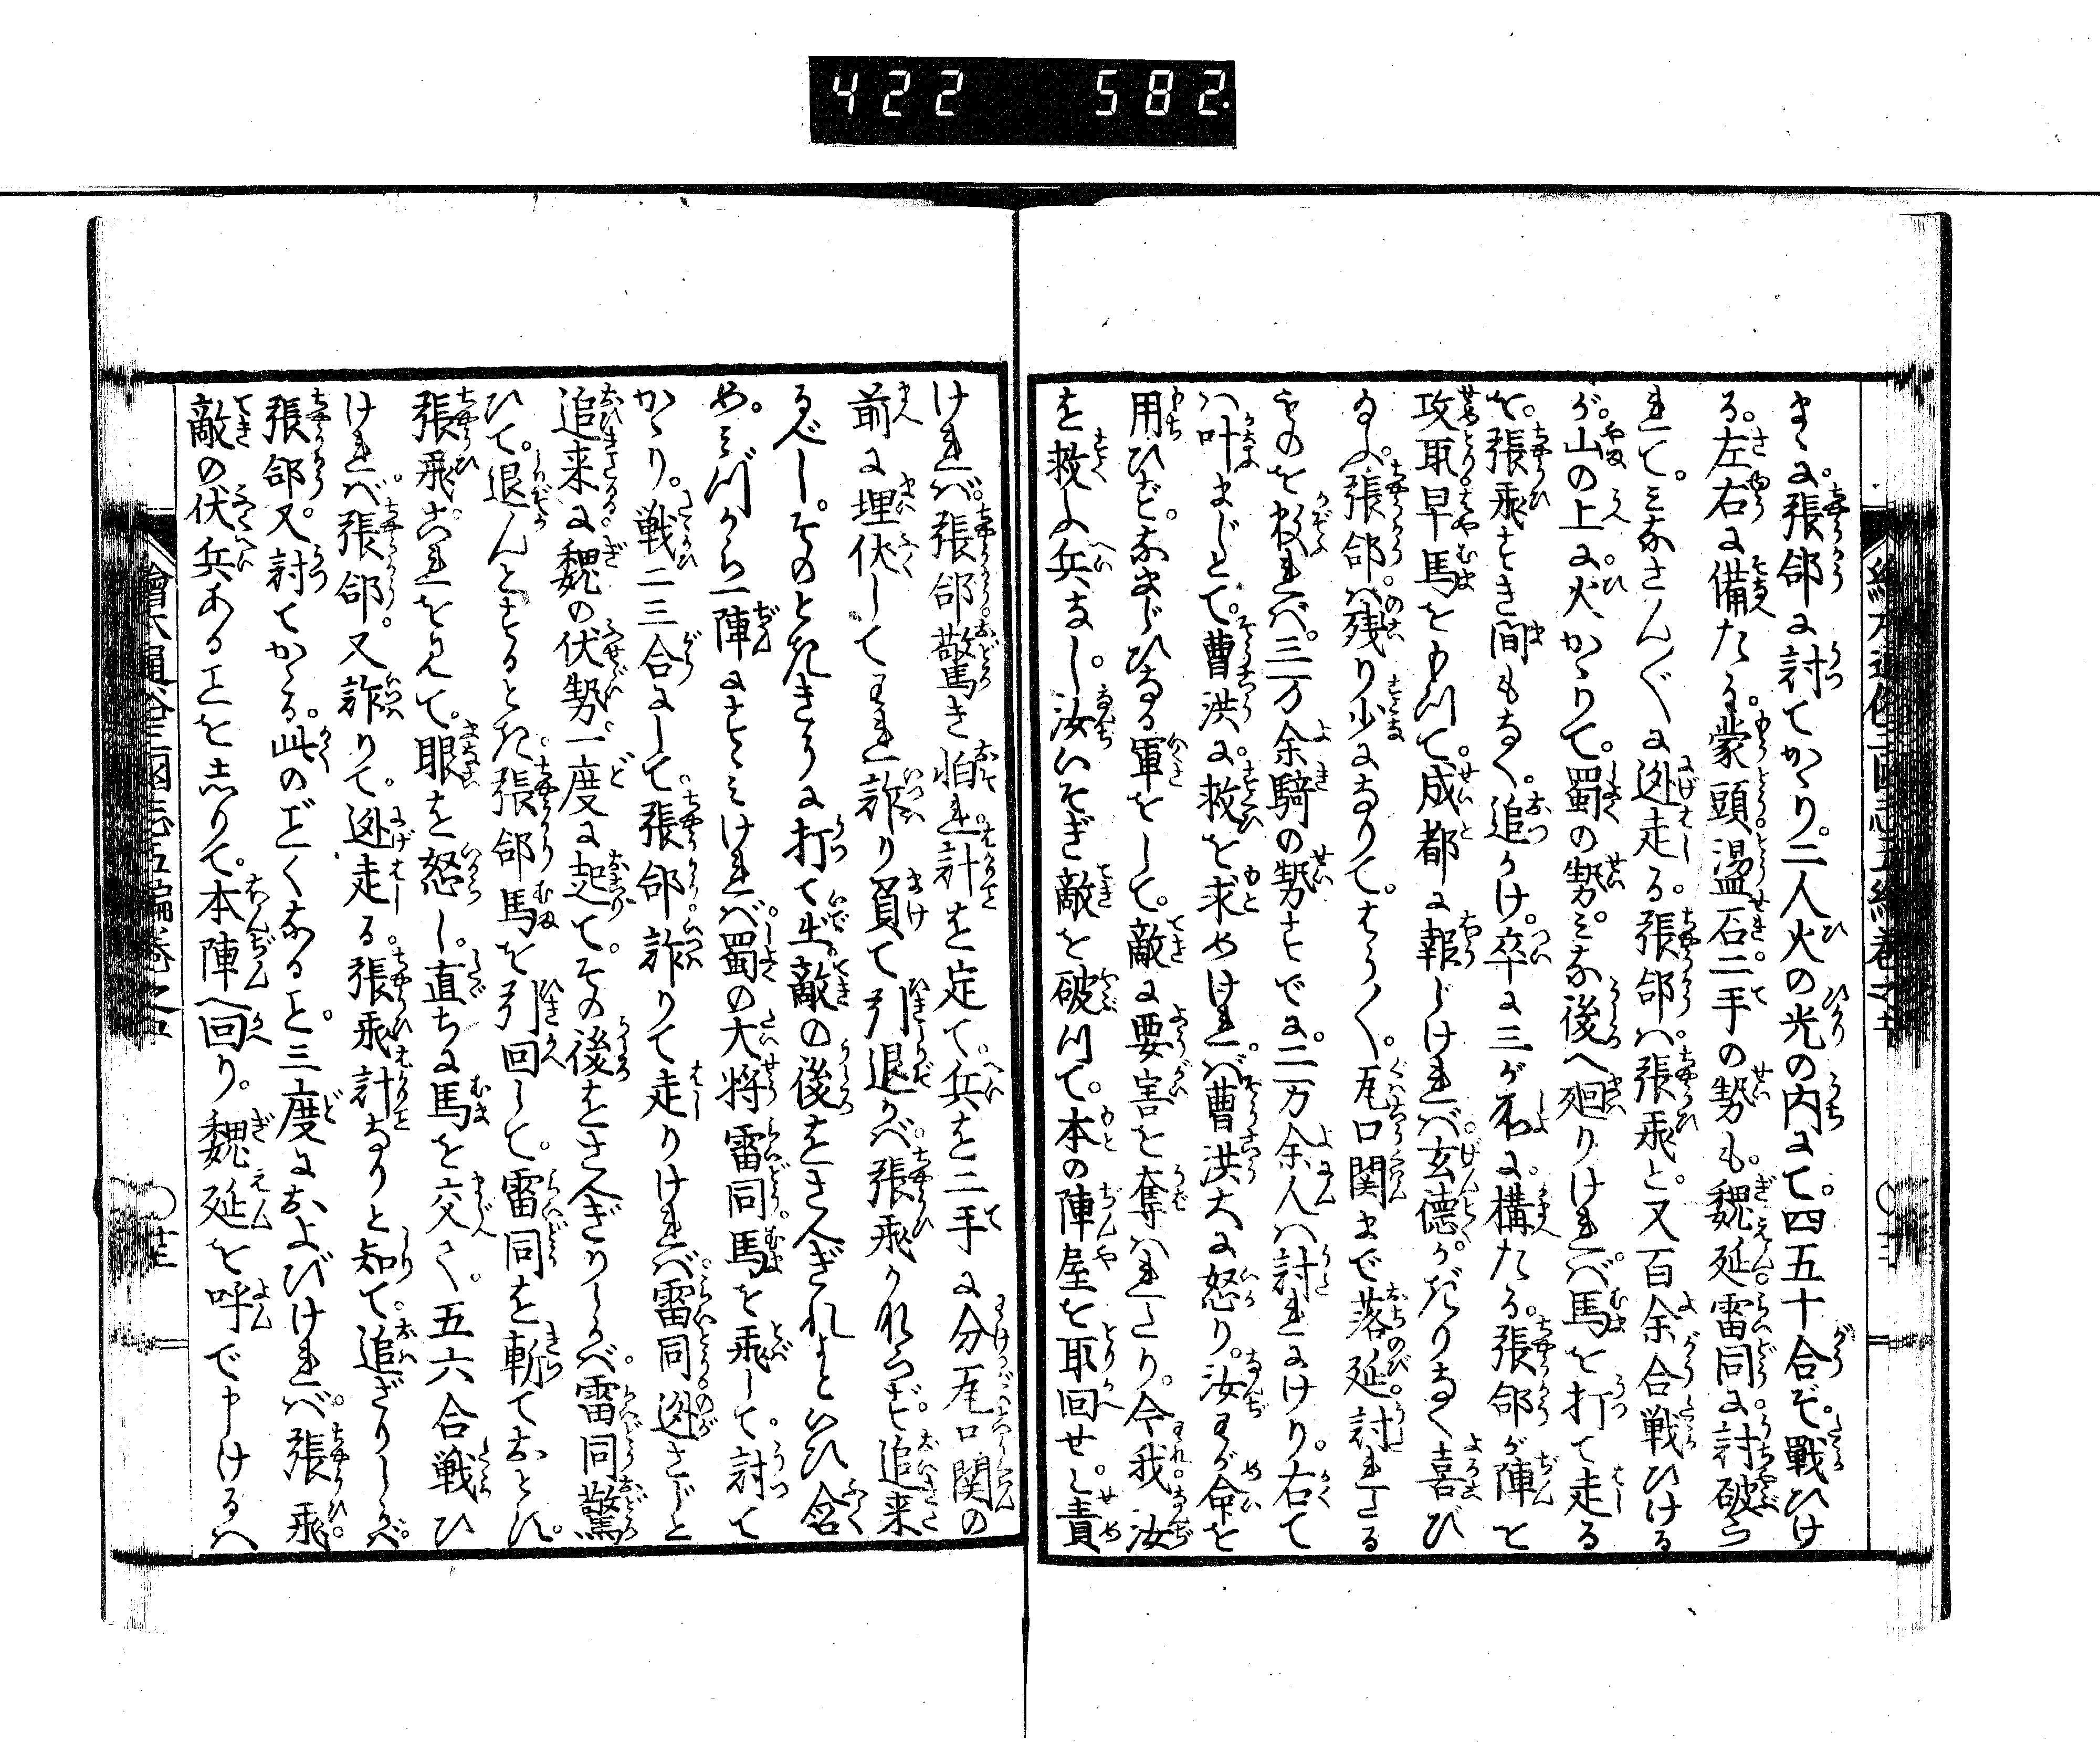 422 582
まゝに。張郃に討てかゝり。二人火の光の内にて。四五十合ぞ。戰ひけ
る。左右に備たる。蒙頭盪石二手の勢も。魏延。雷同に討破ら
れて。みなさんぐに迯走る。張郃ハ。張飛と。又百余合戦ひける
が。山の上に火かゝりて。蜀の勢。みな後へ廻りけれバ。馬を打て走る
を。張飛すき間もなく。追かけ。卒に三が所に。構たる。張郃が陣を
攻取早馬をもつて。成都に報じけれバ。玄德かぎりなく喜び
ゐふ。張郃ハ残り少になりて。はう〳〵。瓦口関まで落延討れたる
ものを数れバ。三万余騎の勢すでに。二万余人ハ討れにけり。右て
ハ叶まじとて。曹洪に。救を求めけれバ。曹洪大に怒り。汝わが命を
用ひど。なまじひなる軍をして。敵に要害を奪ハれたり。今我。汝
を救ふ兵なし。汝いそぎ敵を破つて。本の陣屋を取回せと責
けれバ。張郃驚き怕れ。計を定て。兵を二手に分瓦口関の
前に埋伏してわれ詐り負て引退かバ。張飛かならず。追来
るべし。そのときうに打て出。敵の後をさへぎれよといひ含
め。みづから一陣にすゝみけれバ。蜀の大将雷同馬を飛して。討て
かゝり。戦二三合にして。張郃詐りて走りけれバ。雷同迯さじと
追来に魏の伏勢。一度に起て。その後をさへぎりしかバ。雷同驚
ひて。退んとするとき。張郃馬を引回して。雷同を斬ておとす。
張飛。これを見て。眼を怒し。直ちに馬を交へて。五六合戦ひ
けれバ。張郃。又詐りて。迯走る。張飛計なりと知て。追ざりしかバ。
張郃。又討てかゝる。此のごとくなること。三度におよびけれバ。張飛。
敵の伏兵あることを志りて。本陣へ回り。魏延を呼で申けるハ